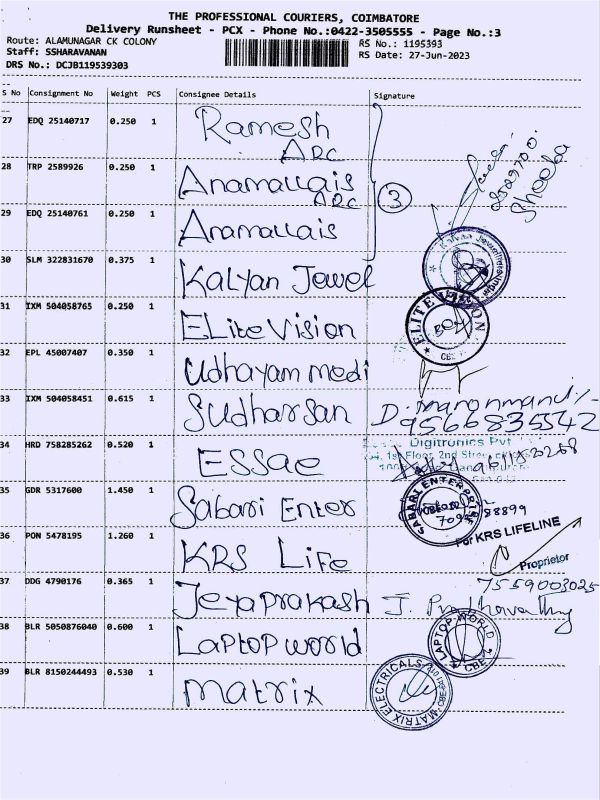 THE PROFESSIONAL COURIERS, COIMBATORE
Delivery Runsheet - PCX - Phone No.:0422-3505555 - Page No.:3
Route: ALAMUNAGAR CK COLONY
RS No.: 1195393
Staff: SSHARAVANAN
RS Date: 27-Jun-2023
DRS No.: DCJB119539303
S No Consignment No Weight PCS Consignee Details Signature
27 EDQ 25140717 0.250 1 Ramesh
ARC
28 TRP 2589926 0.250 1 Anamallais
ARC
3
Sheeba
29 EDQ 25140761 0.250 1 Anamallais
30 SLM 322831670 0.375 1 Kalyan Jewel
31 IXM 504058765 0.250 1 ELite Vision
ELITE VISION
CBE
32 EPL 45007407 0.350 1 Udhayam medi
33 IXM 504058451 0.615 1 Sudharsan
9566835542
34 HRD 758285262 0.520 1 ESSAE
Digitronics Pvt
1st Floor, 2nd Street
35 GDR 5317600 1.450 1 Sabari Enter
SABARI ENTERPRISE
36 PON 5478195 1.260 1 KRS LiFe
For KRS LIFELINE
Proprietor
37 DDG 4790176 0.365 1 Jeyaprakash
7559003025
38 BLR 5050876040 0.600 1 Laptop world
LAPTOP WORLD
CBE
39 BLR 8150244493 0.530 1 matrix
MATRIX ELECTRICALS